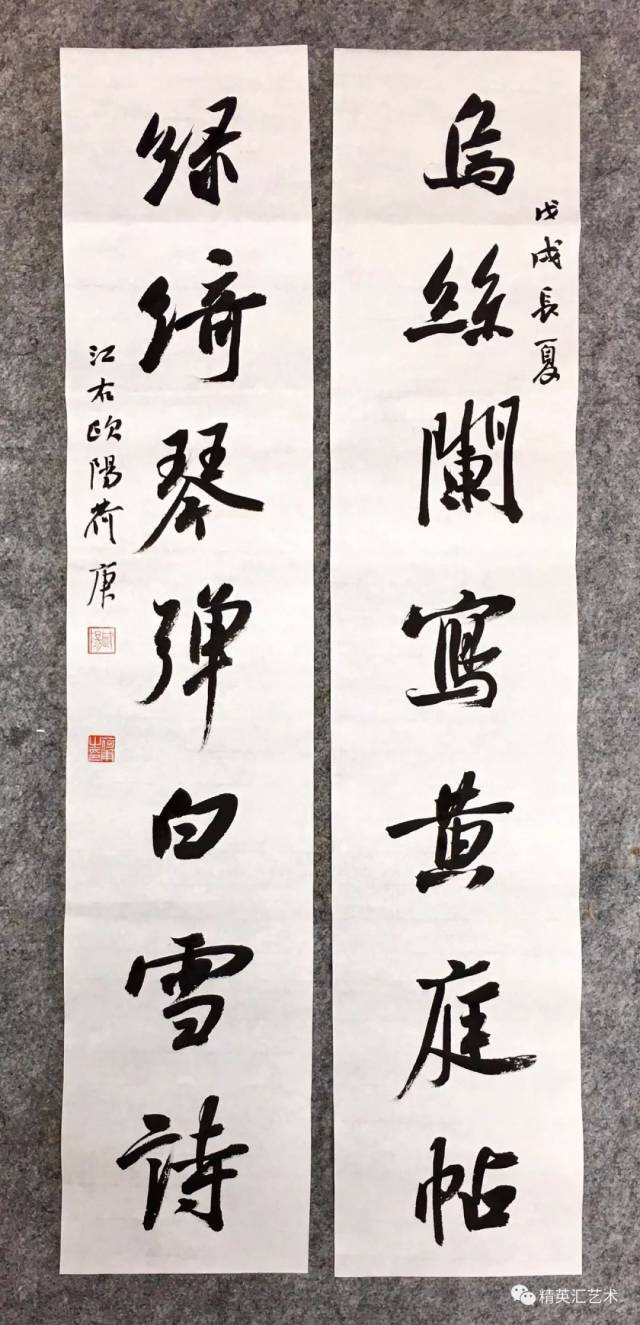 戊戌長夏
烏絲闌寫黃庭帖
綠綺琴弹白雪詩
江右欧陽荷庚
精英汇艺术